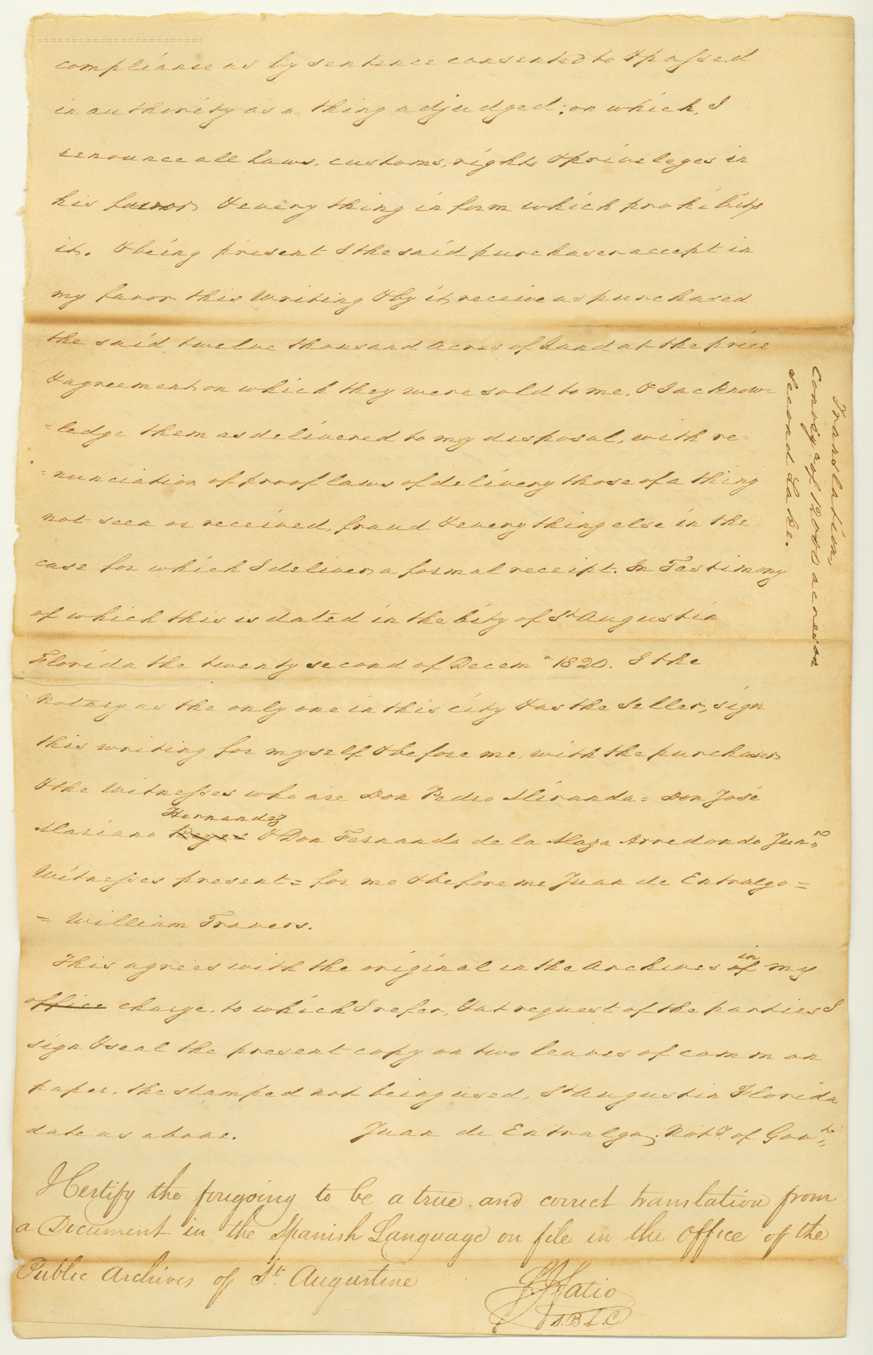 compliance as by sentence consented to & passed
in authority as a thing adjudged; on which, I
renounce all laws, customs, rights & priveleges in
his favor & every thing in form which prohibits
it. & being present I the said purchaser accept in
my favor this Writing & by it, receive as purchased
the said twelve thousand acres of Land at the price
& agreement on which they were sold to me, & I acknow=
=ledge them as delivered to my disposal, with re=
=nunciation of proof laws of delivery those of a thing
not seen or received, fraud & every thing else in the
case for which I deliver a formal receipt. In Testimony
of which this is dated in the City of St Augustin
Florida the twenty second of Decemr 1820. I the
Notary as the only one in this city & as the Seller, sign
this writing for myself & before me, with the purchaser
& the Witnesses who are Don Pedro Miranda= Don José
Hernandez
Mariano Reyes & Don Fernando de la Maza Arredondo Junro
Witnesses present= for me & before me Juan de Entralgo=
= William Travers.
This agrees with the original in the Archives of in my
office charge, to which I refer, & at request of the parties I
sign & seal the present copy on two leaves of common
paper, the stamped not being used, St Augustin Florida
date as above. Juan de Entralgo, Noty of Govt
I Certify the foregoing to be a true and correct translation from
a Document in the Spanish Language on file in the office of the
Public Archives of St. Augustine
S.B.L.C
Translation
of 12000 acres on
Second Lake.